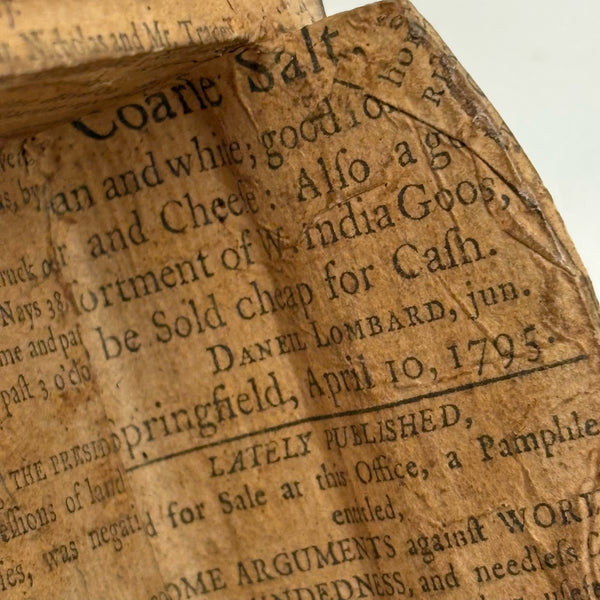 Nicholas and Mr. Tracey
Coarſe Salt,
an and white; good for
and Cheeſe: Alſo a
ſortment of W. India Goos,
be Sold cheap for Caſh.
DANEIL LOMBARD, jun.
pringfield, April 10, 1795.
LATELY PUBLISHED,
for Sale at this Office, a Pamphle
entitled,
OME ARGUMENTS againſt WORL
NDEDNESS, and needleſs C
ruck
Nays 38
me and paſ
paſt 3 o'clo
THE PRESID
eſſions of land
es, was negati